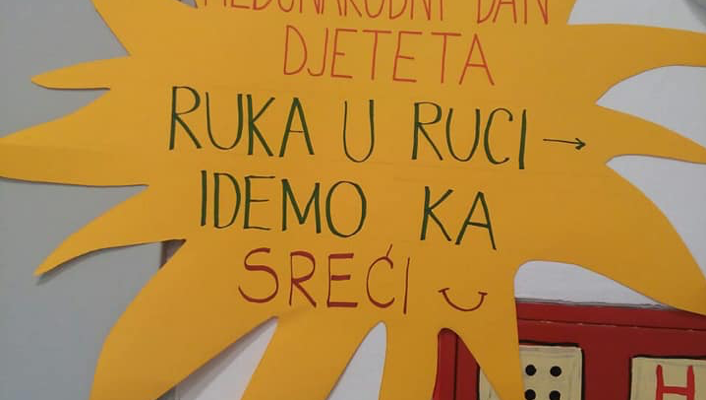 MEĐUNARODNI DAN
DJETETA
RUKA U RUCI →
IDEMO KA
SREĆI
H